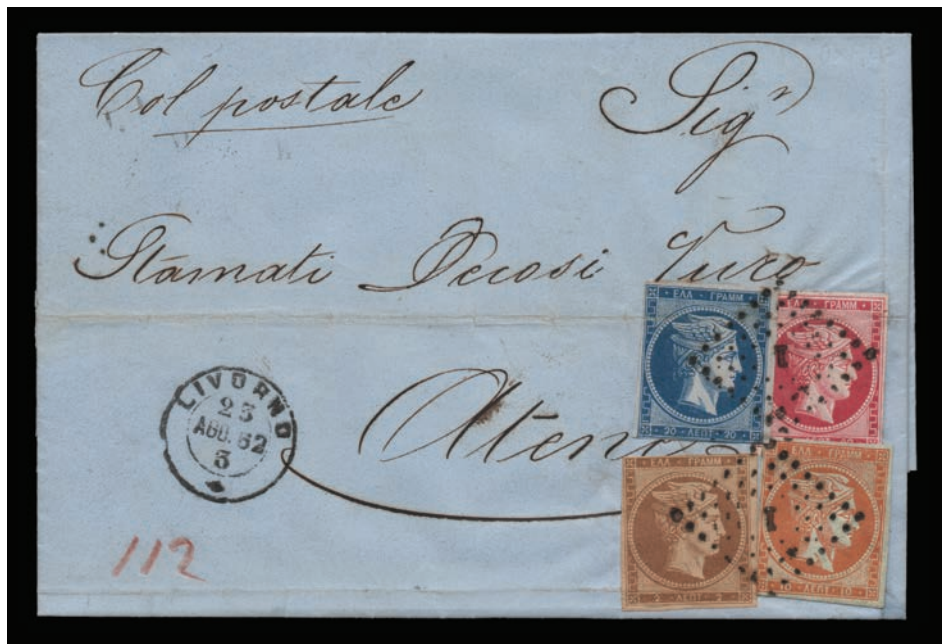 Col postale
Sig^n
Stamati Decosi Vuro
Atene
LIVORNO
23
AGO. 62
3
112
ΕΛΛ · ΓΡΑΜΜ
20 · ΛΕΠΤ · 20
ΕΛΛ · ΓΡΑΜΜ
1
ΕΛΛ · ΓΡΑΜΜ
2 · ΛΕΠΤ · 2
ΕΛΛ · ΓΡΑΜΜ
10 · ΛΕΠΤ · 10
1